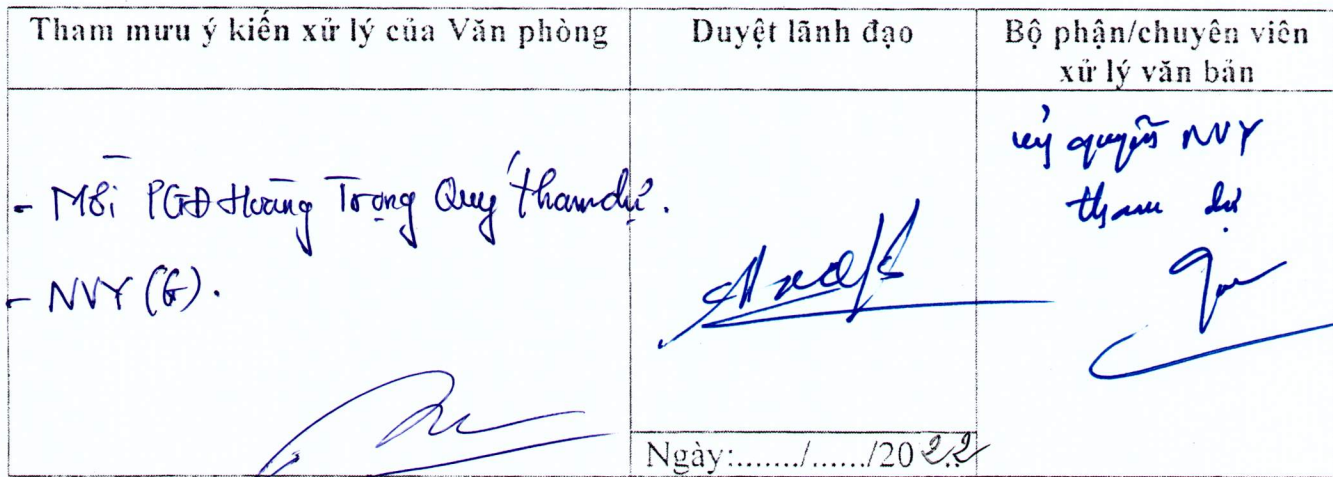 Tham mưu ý kiến xử lý của Văn phòng
Duyệt lãnh đạo
Bộ phận/chuyên viên
xử lý văn bản
- Mời PGĐ Hoàng Trọng Quý tham dự.
- NVY (G).
Ngày:......./....../2022
uỷ quyền NVY
tham dự